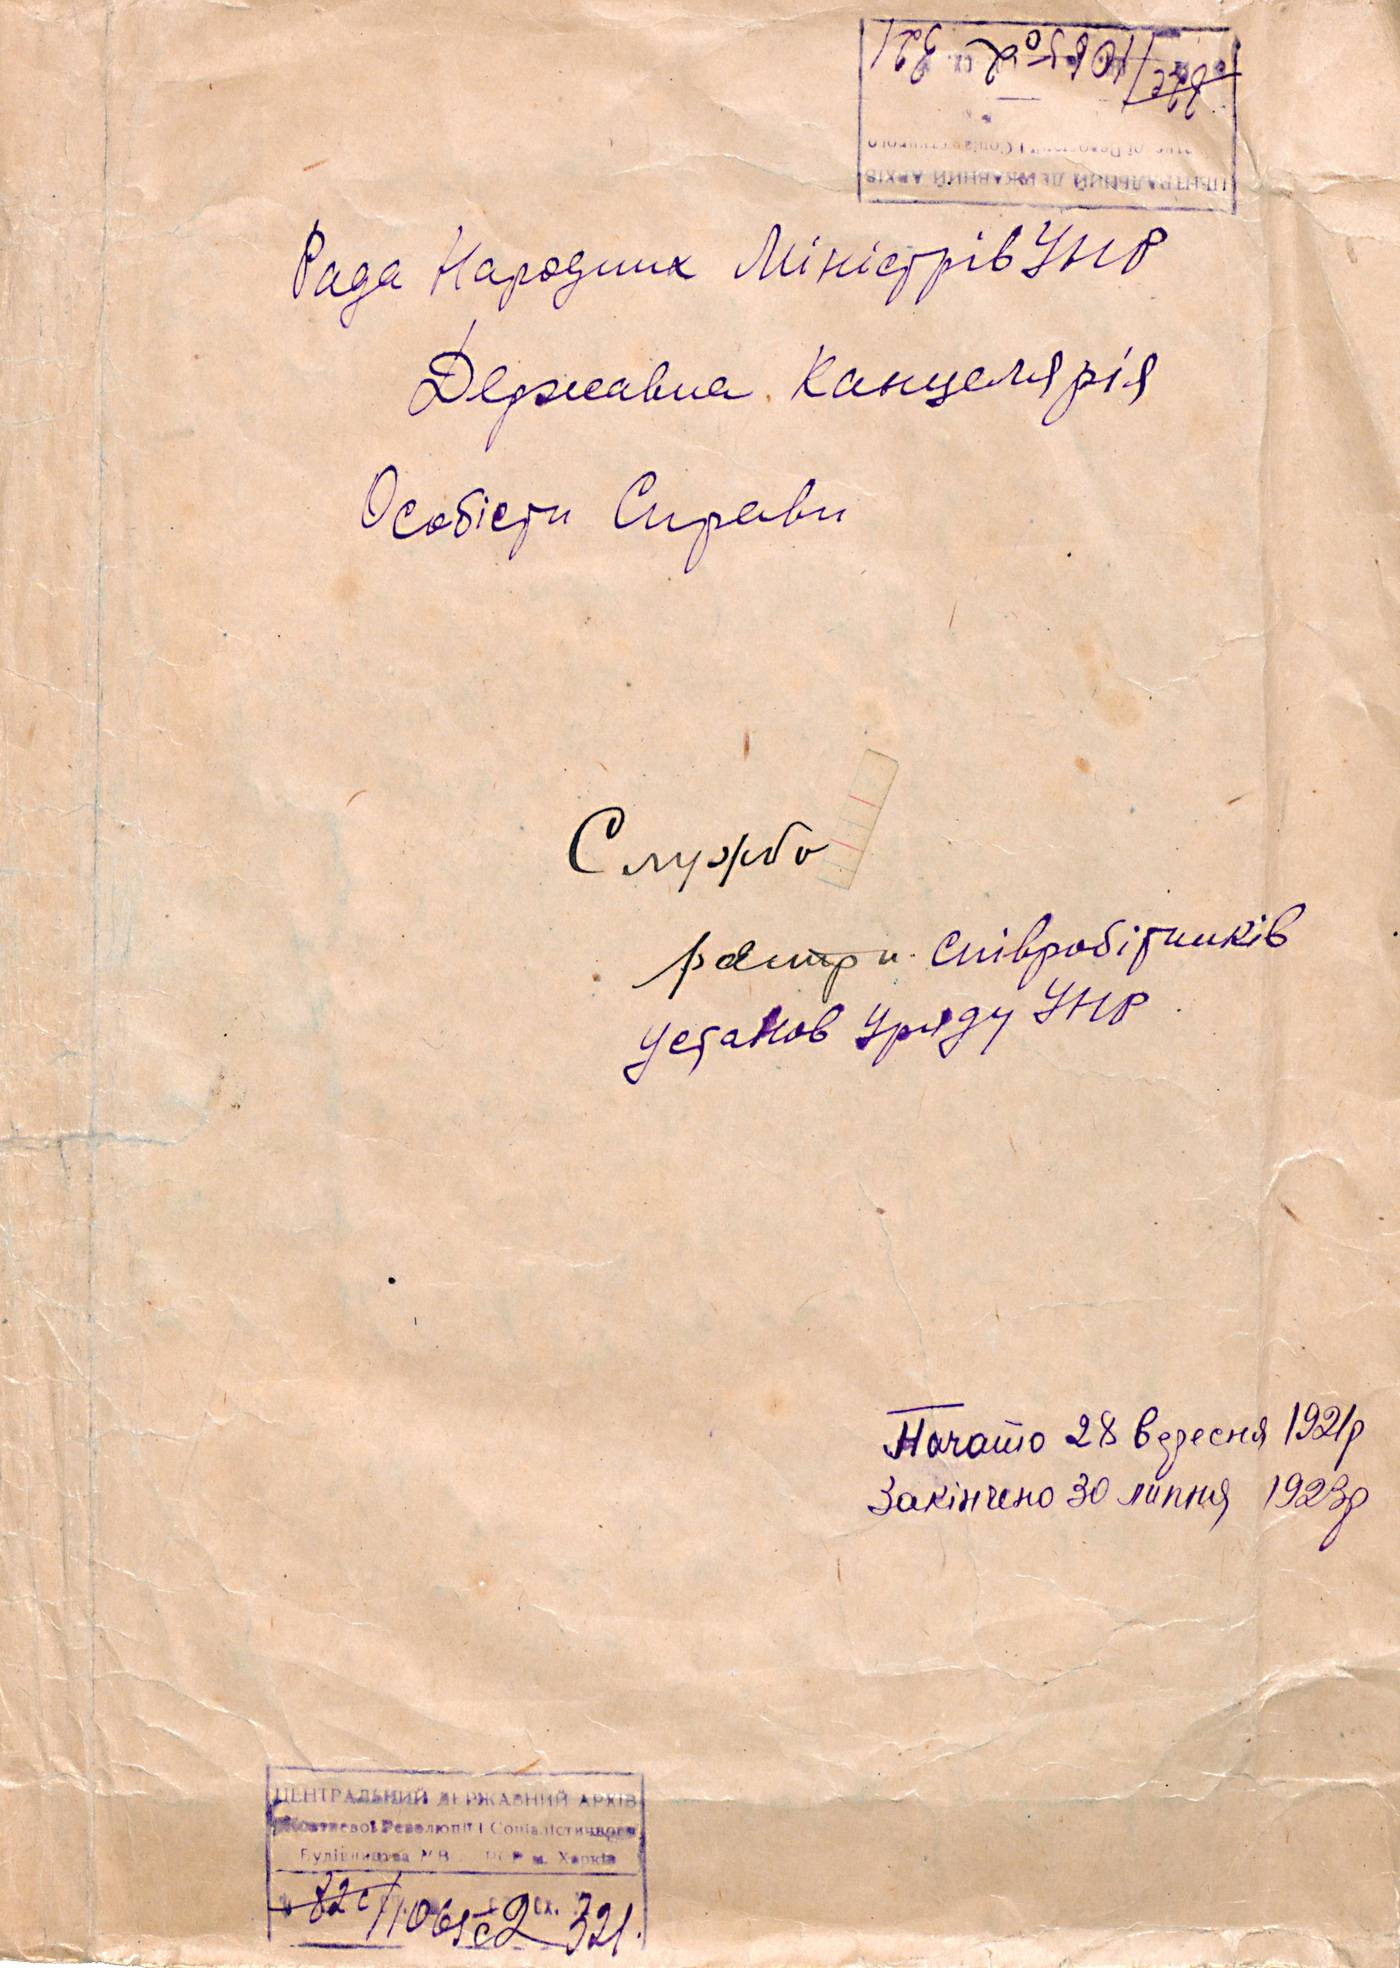 ЦЕНТРАЛЬНИЙ ДЕРЖАВНИЙ АРХІВ
321
Рада Народних Міністрів УНР
Державна Канцелярія
Особісти Справи
Службо
співробітників
установ Уряду УНР
Начато 28 вересня 1921р
Закінчено 30 липня 1923р
ЦЕНТРАЛЬНИЙ ДЕРЖАВНИЙ АРХІВ
Жовтневої Революції і Соціалістичного
Будівництва м. Харків
82с/1065с 2 сх. 321.